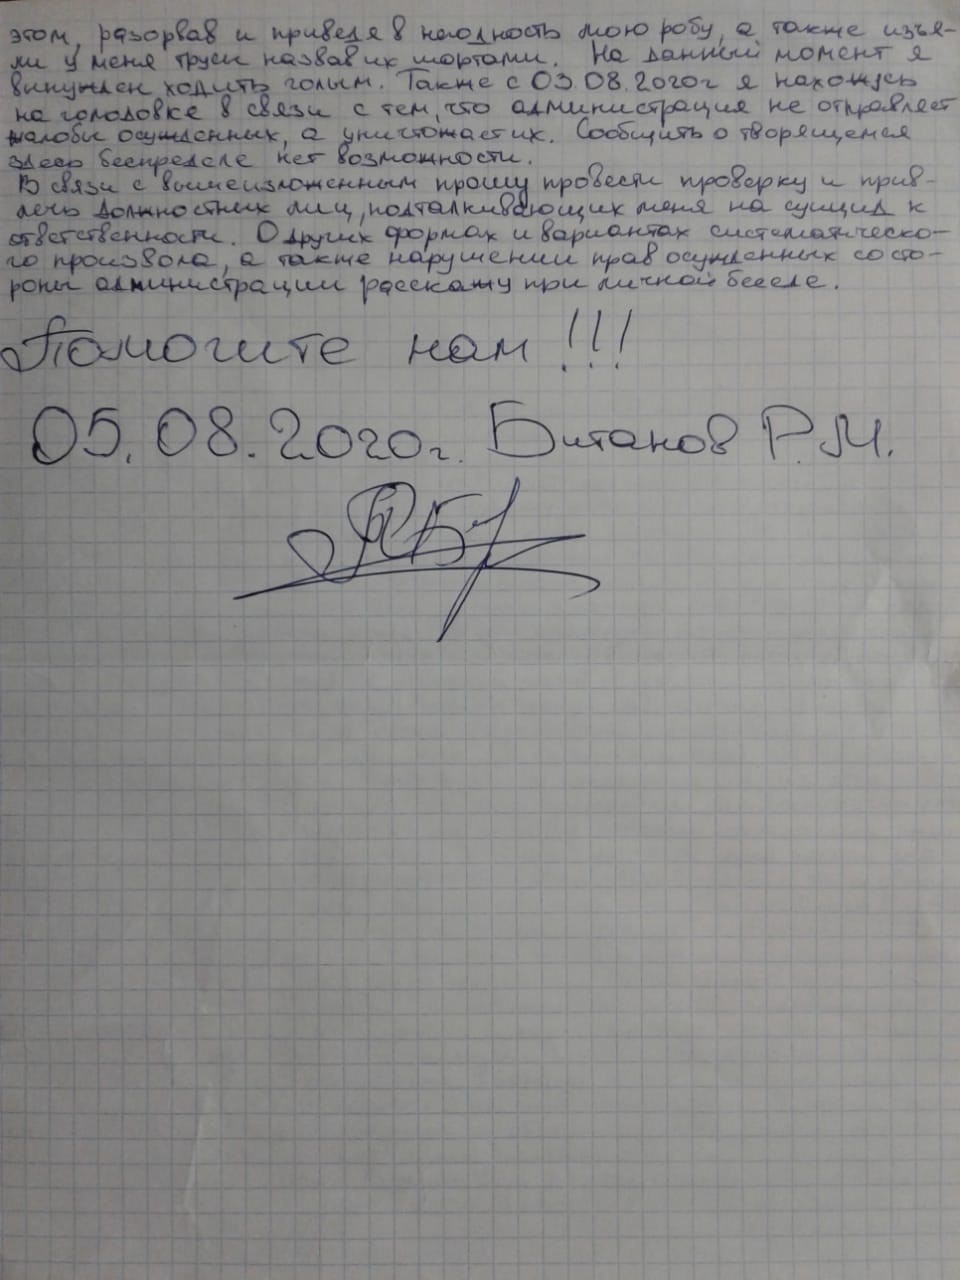 этом, разорвав и приведя в негодность мою робу, а также изъя-
ли у меня трусы назвав их шортами. На данный момент я
вынужден ходить голым. Также с 03.08.2020г я нахожусь
на голодовке в связи с тем, что администрация не отправляет
жалобы осужденных, а уничтожает их. Сообщить о творящемся
здесь беспределе нет возможности.
В связи с вышеизложенным прошу провести проверку и прив-
лечь должностных лиц, подталкивающих меня на суицид к
ответственности. О других формах и вариантах систематическо-
го произвола, а также нарушении прав осужденных со сто-
роны администрации расскажу при личной беседе.
Помогите нам!!!
05.08.2020г. Битанов Р.М.